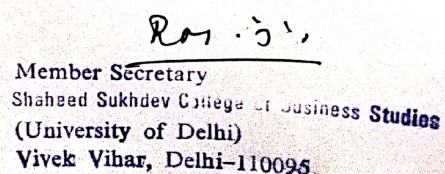 Member Secretary
Shaheed Sukhdev College of Business Studies
(University of Delhi)
Vivek Vihar, Delhi-110095